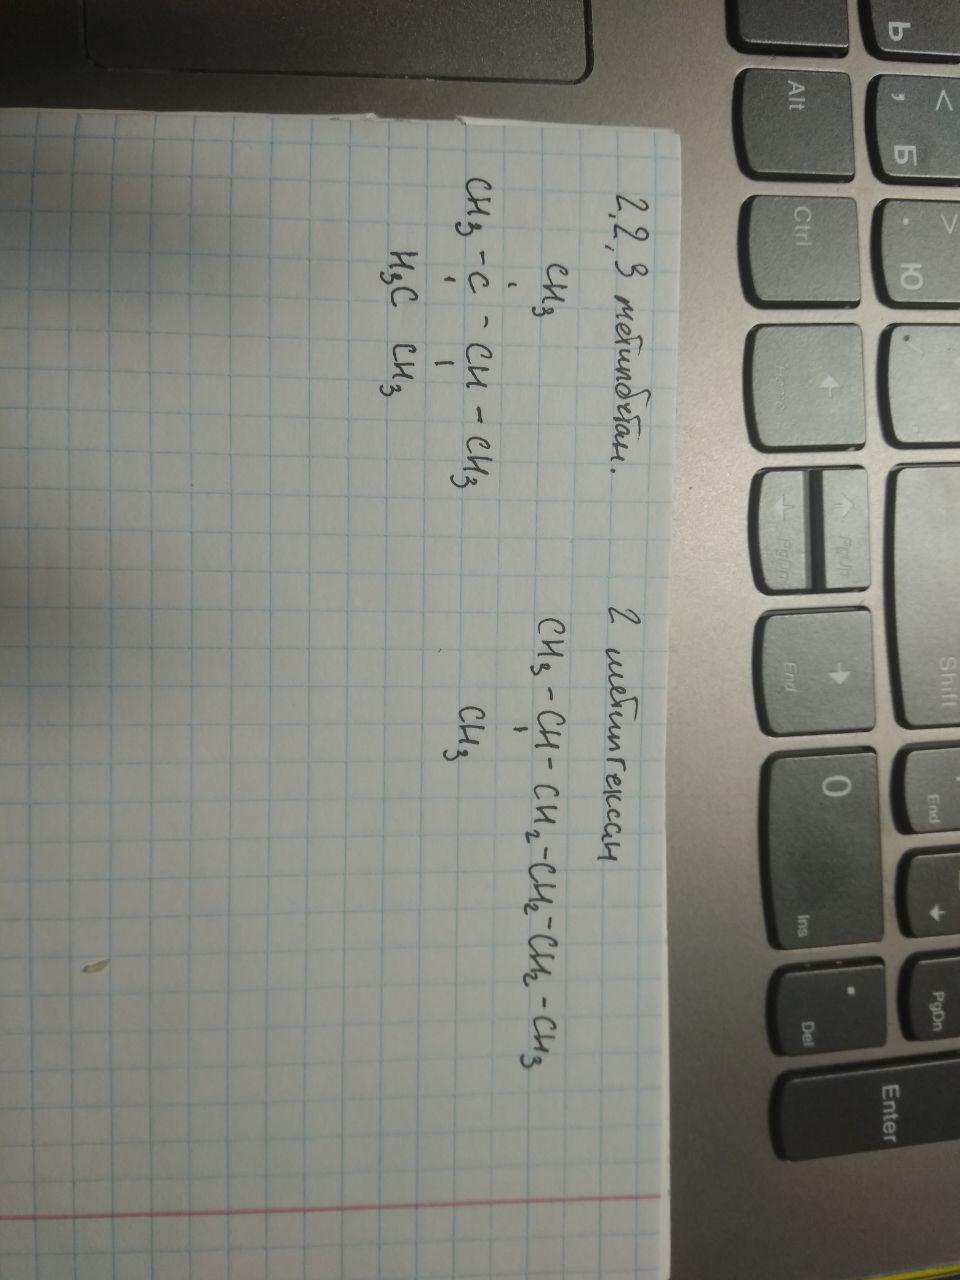 2,2,3 метилбутан.
CH3
CH3 - C - CH - CH3
H3C CH3
2 метилгексан
CH3 - CH - CH2 - CH2 - CH2 - CH3
CH3
Ь
Alt
< , Б
Ctrl
> . Ю
Home
PgUp
PgDn
End
Shift
0 Ins
End
. Del
PgDn
Enter